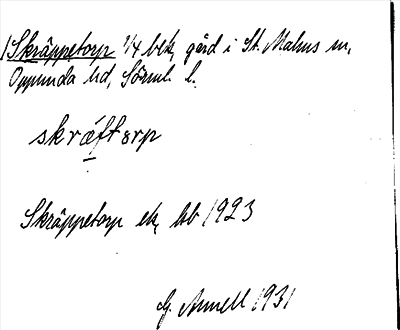 1/Skräppetorp 1/4 bek, gård i St. Malms sn,
Oppunda hd, Sörml. l.
skräftorp
Skräppetorp ek, kb 1923
G. Annell 1931